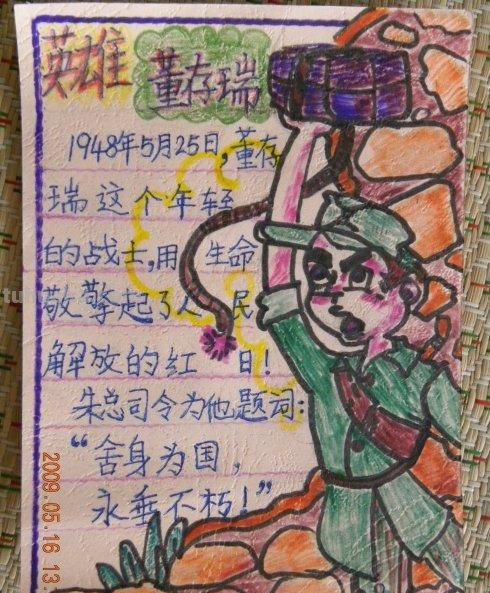 英雄 董存瑞
1948年5月25日,董存
瑞这个年轻
的战士,用 生命
敬擎起了人 民
解放的红 日!
朱总司令为他题词:
“舍身为国,
永垂不朽!”
2009.05.16 13